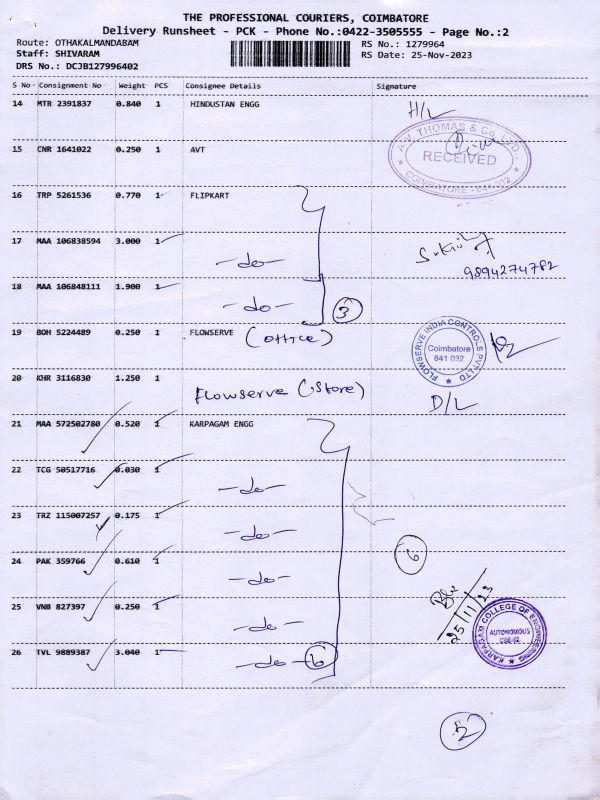 THE PROFESSIONAL COURIERS, COIMBATORE
Delivery Runsheet - PCK - Phone No.:0422-3505555 - Page No.:2
Route: OTHAKALMANDABAM RS No.: 1279964
Staff: SHIVARAM RS Date: 25-Nov-2023
DRS No.: DCJB127996402
S No Consignment No Weight PCS Consignee Details Signature
14 MTR 2391837 0.840 1 HINDUSTAN ENGG H/L
15 CNR 1641022 0.250 1 AVT
A.V. THOMAS & Co. LTD.,
RECEIVED
COIMBATORE
16 TRP 5261536 0.770 1 FLIPKART
17 MAA 106838594 3.000 1 -do-
9894274782
18 MAA 106848111 1.900 1 -do- 3
19 BOH 5224489 0.250 1 FLOWSERVE (office)
FLOWSERVE INDIA CONTROLS PVT LTD
Coimbatore
641 032
20 KHR 3116830 1.250 1 Flowserve (Store) D/L
21 MAA 572502780 0.520 1 KARPAGAM ENGG
22 TCG 50517716 0.030 1 -do-
23 TRZ 115007257 0.175 1 -do-
24 PAK 359766 0.610 1 -do- 6
25 VNB 827397 0.250 1 -do-
25/11/23
KARPAGAM COLLEGE OF ENGINEERING
AUTONOMOUS
26 TVL 9889387 3.040 1 -do- 6
2